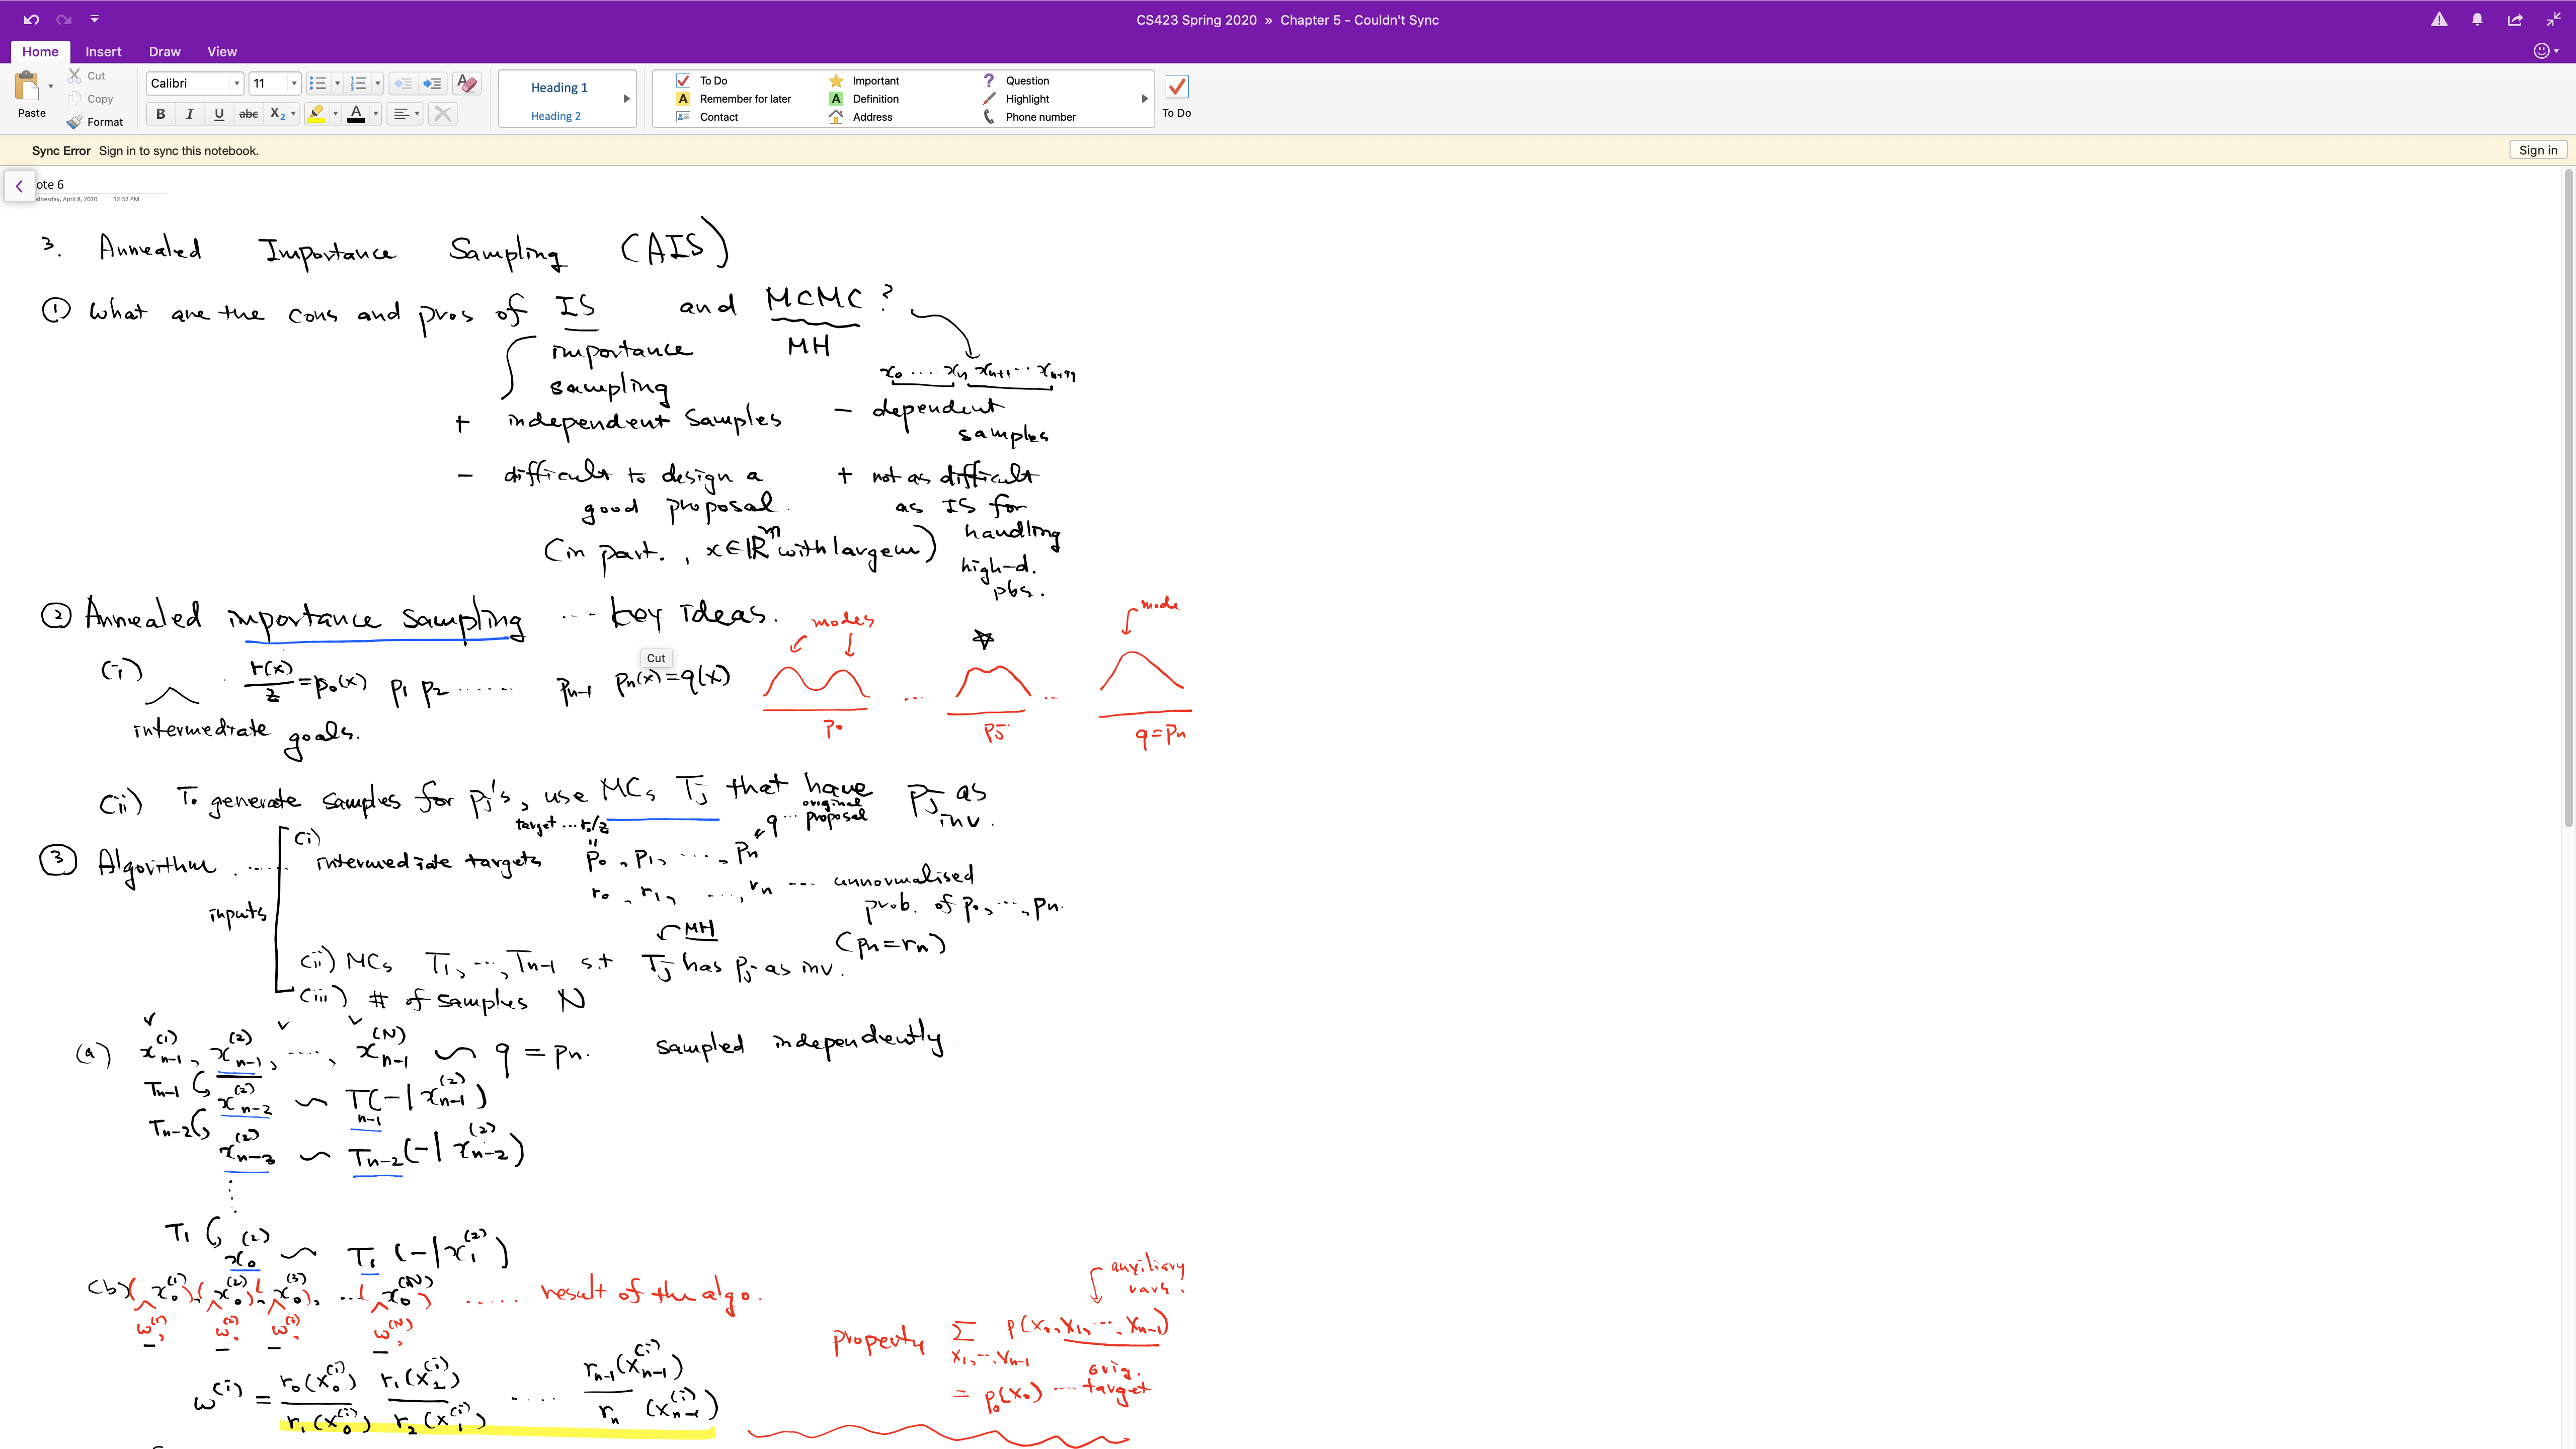 CS423 Spring 2020 » Chapter 5 - Couldn't Sync
Home Insert Draw View
Paste
Cut
Copy
Format
Calibri 11
B I U abc X₂ A
Heading 1
Heading 2
To Do Important Question
Remember for later Definition Highlight
Contact Address Phone number
To Do
Sync Error Sign in to sync this notebook.
Sign in
ote 6
dnesday, April 8, 2020 12:52 PM
3. Annealed Importance Sampling (AIS)
① What are the cons and pros of IS and MCMC?
importance sampling
MH
x₀ .... xₙ xₙ₊₁ ...
+ independent samples
- dependent samples
- difficult to design a good proposal.
(in part., x∈ℝᵐ with large m)
+ not as difficult as IS for handling high-d. pbs.
② Annealed importance sampling ... key ideas.
(i) r(x)/z = p₀(x) p₁ p₂ ...... pₙ₋₁ pₙ(x) = q(x)
Cut
intermediate goals.
modes
mode
p₀ ... pⱼ ... q=pₙ
(ii) To generate samples for pⱼ's, use MCs Tⱼ that have pⱼ as inv.
target ... r₀/z
q ... original proposal
③ Algorithm ......
inputs
(i) intermediate targets p₀, p₁, ...., pₙ
r₀, r₁, ...., rₙ --- unnormalised prob. of p₀, ..., pₙ.
(pₙ=rₙ)
MH
(ii) MCs T₁, ..., Tₙ₋₁ s.t Tⱼ has pⱼ as inv.
(iii) # of samples N
(a) xₙ₋₁⁽¹⁾, xₙ₋₁⁽²⁾, ...., xₙ₋₁⁽ᴺ⁾ ~ q = pₙ. sampled independently
Tₙ₋₁ xₙ₋₂⁽²⁾ ~ Tₙ₋₁(-|xₙ₋₁⁽²⁾)
Tₙ₋₂ xₙ₋₃⁽²⁾ ~ Tₙ₋₂(-|xₙ₋₂⁽²⁾)
T₁ x₀⁽²⁾ ~ T₁(-|x₁⁽²⁾)
(b) (x₀⁽¹⁾), (x₀⁽²⁾), (x₀⁽³⁾), ... (x₀⁽ᴺ⁾) ..... result of the algo.
w⁽¹⁾, w⁽²⁾, w⁽³⁾, w⁽ᴺ⁾,
auxiliary vars.
property Σ p(x₀, x₁, ..., xₙ₋₁)
x₁, ..., xₙ₋₁
= p₀(x₀) ---- orig. target
w⁽ⁱ⁾ = r₀(x₀⁽ⁱ⁾)/r₁(x₀⁽ⁱ⁾) r₁(x₁⁽ⁱ⁾)/r₂(x₁⁽ⁱ⁾) .... rₙ₋₁(xₙ₋₁⁽ⁱ⁾)/rₙ(xₙ₋₁⁽ⁱ⁾)